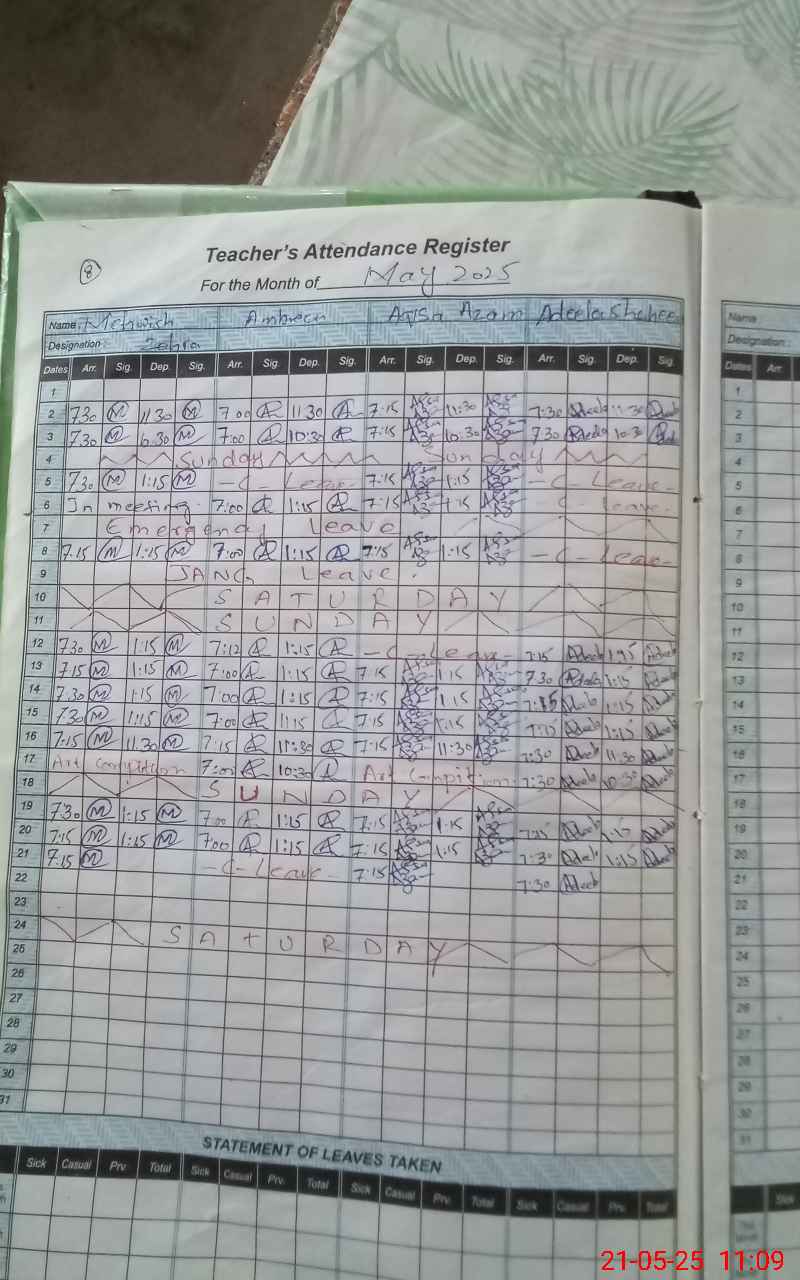 8
Teacher's Attendance Register
For the Month of May 2025
Name: Mehwish Ambreen Aqsa Azam Adeela Shaheen Name
Designation: Zehra Designation:
Dates Arr. Sig. Dep. Sig. Arr. Sig. Dep. Sig. Arr. Sig. Dep. Sig. Arr. Sig. Dep. Sig. Dates Arr.
1 1
2 7:30 M 11:30 M 7:00 11:30 7:15 11:30 7:30 Adeel 11:30 2
3 7:30 M 10:30 M 7:00 10:30 7:15 10:30 7:30 10:30 3
4 Sunday Sunday 4
5 7:30 M 1:15 M -C- Leave- 7:15 1:15 -C- Leave- 5
6 In meeting. 7:00 1:15 7:15 1:15 -C- leave- 6
7 Emergency Leave 7
8 7:15 M 1:15 M 7:00 1:15 7:15 1:15 -C- Leav- 8
9 Leave. 9
10 SATURDAY 10
11 SUNDAY 11
12 7:30 M 1:15 M 7:12 1:15 -C- Leave- 7:15 Adeel 1:15 Adeel 12
13 7:15 M 1:15 M 7:00 1:15 7:15 1:15 7:30 1:15 Adeel 13
14 7:30 M 1:15 M 7:00 1:15 7:15 1:15 7:15 Adeel 1:15 Adeel 14
15 7:30 M 1:15 M 7:00 1:15 7:15 1:15 7:15 Adeel 1:15 Adeel 15
16 7:15 M 11:30 M 7:15 11:30 7:15 11:30 7:30 Adeel 11:30 Adeel 16
17 Art Compition 7:00 10:30 Art Compition 7:30 Adeel 10:30 Adeel 17
18 SUNDAY 18
19 7:30 M 1:15 M 7:00 1:15 7:15 1:15 7:15 Adeel 1:15 Adeel 19
20 7:15 M 1:15 M 7:00 1:15 7:15 1:15 7:30 Adeel 1:15 Adeel 20
21 7:15 M -C- Leave- 7:15 7:30 Adeel 21
22 22
23 23
24 SATURDAY 24
25 25
26 26
27 27
28 28
29 29
30 30
31 31
STATEMENT OF LEAVES TAKEN
Sick Casual Prv. Total Sick Casual Prv. Total Sick Casual Prv. Total Sick Casual Prv. Total Sick
21-05-25 11:09